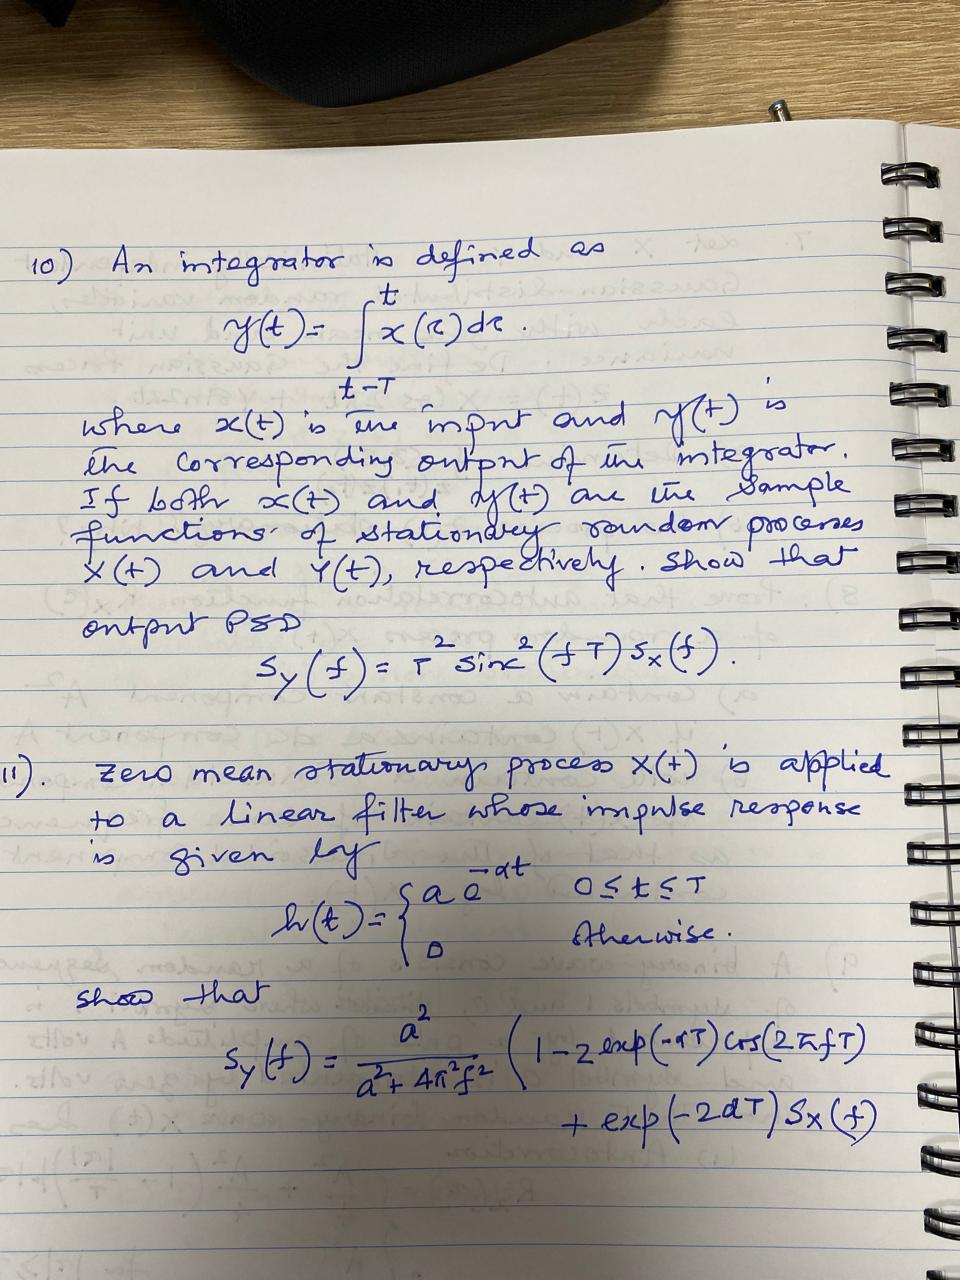 10) An integrator is defined as
y(t) = ∫_{t-T}^{t} x(τ) dτ.
where x(t) is the input and y(t) is
the corresponding output of the integrator.
If both x(t) and y(t) are the sample
functions of stationary random processes
X(t) and Y(t), respectively. Show that
output PSD
S_y(f) = T² sinc²(fT) S_x(f).
11). Zero mean stationary process X(t) is applied
to a linear filter whose impulse response
is given by
h(t) = { a e^{-αt} 0 ≤ t ≤ T
0 otherwise.
show that
S_y(f) = a² / (a² + 4π²f²) (1 - 2 exp(-αT) cos(2πfT)
+ exp(-2αT) S_x(f)